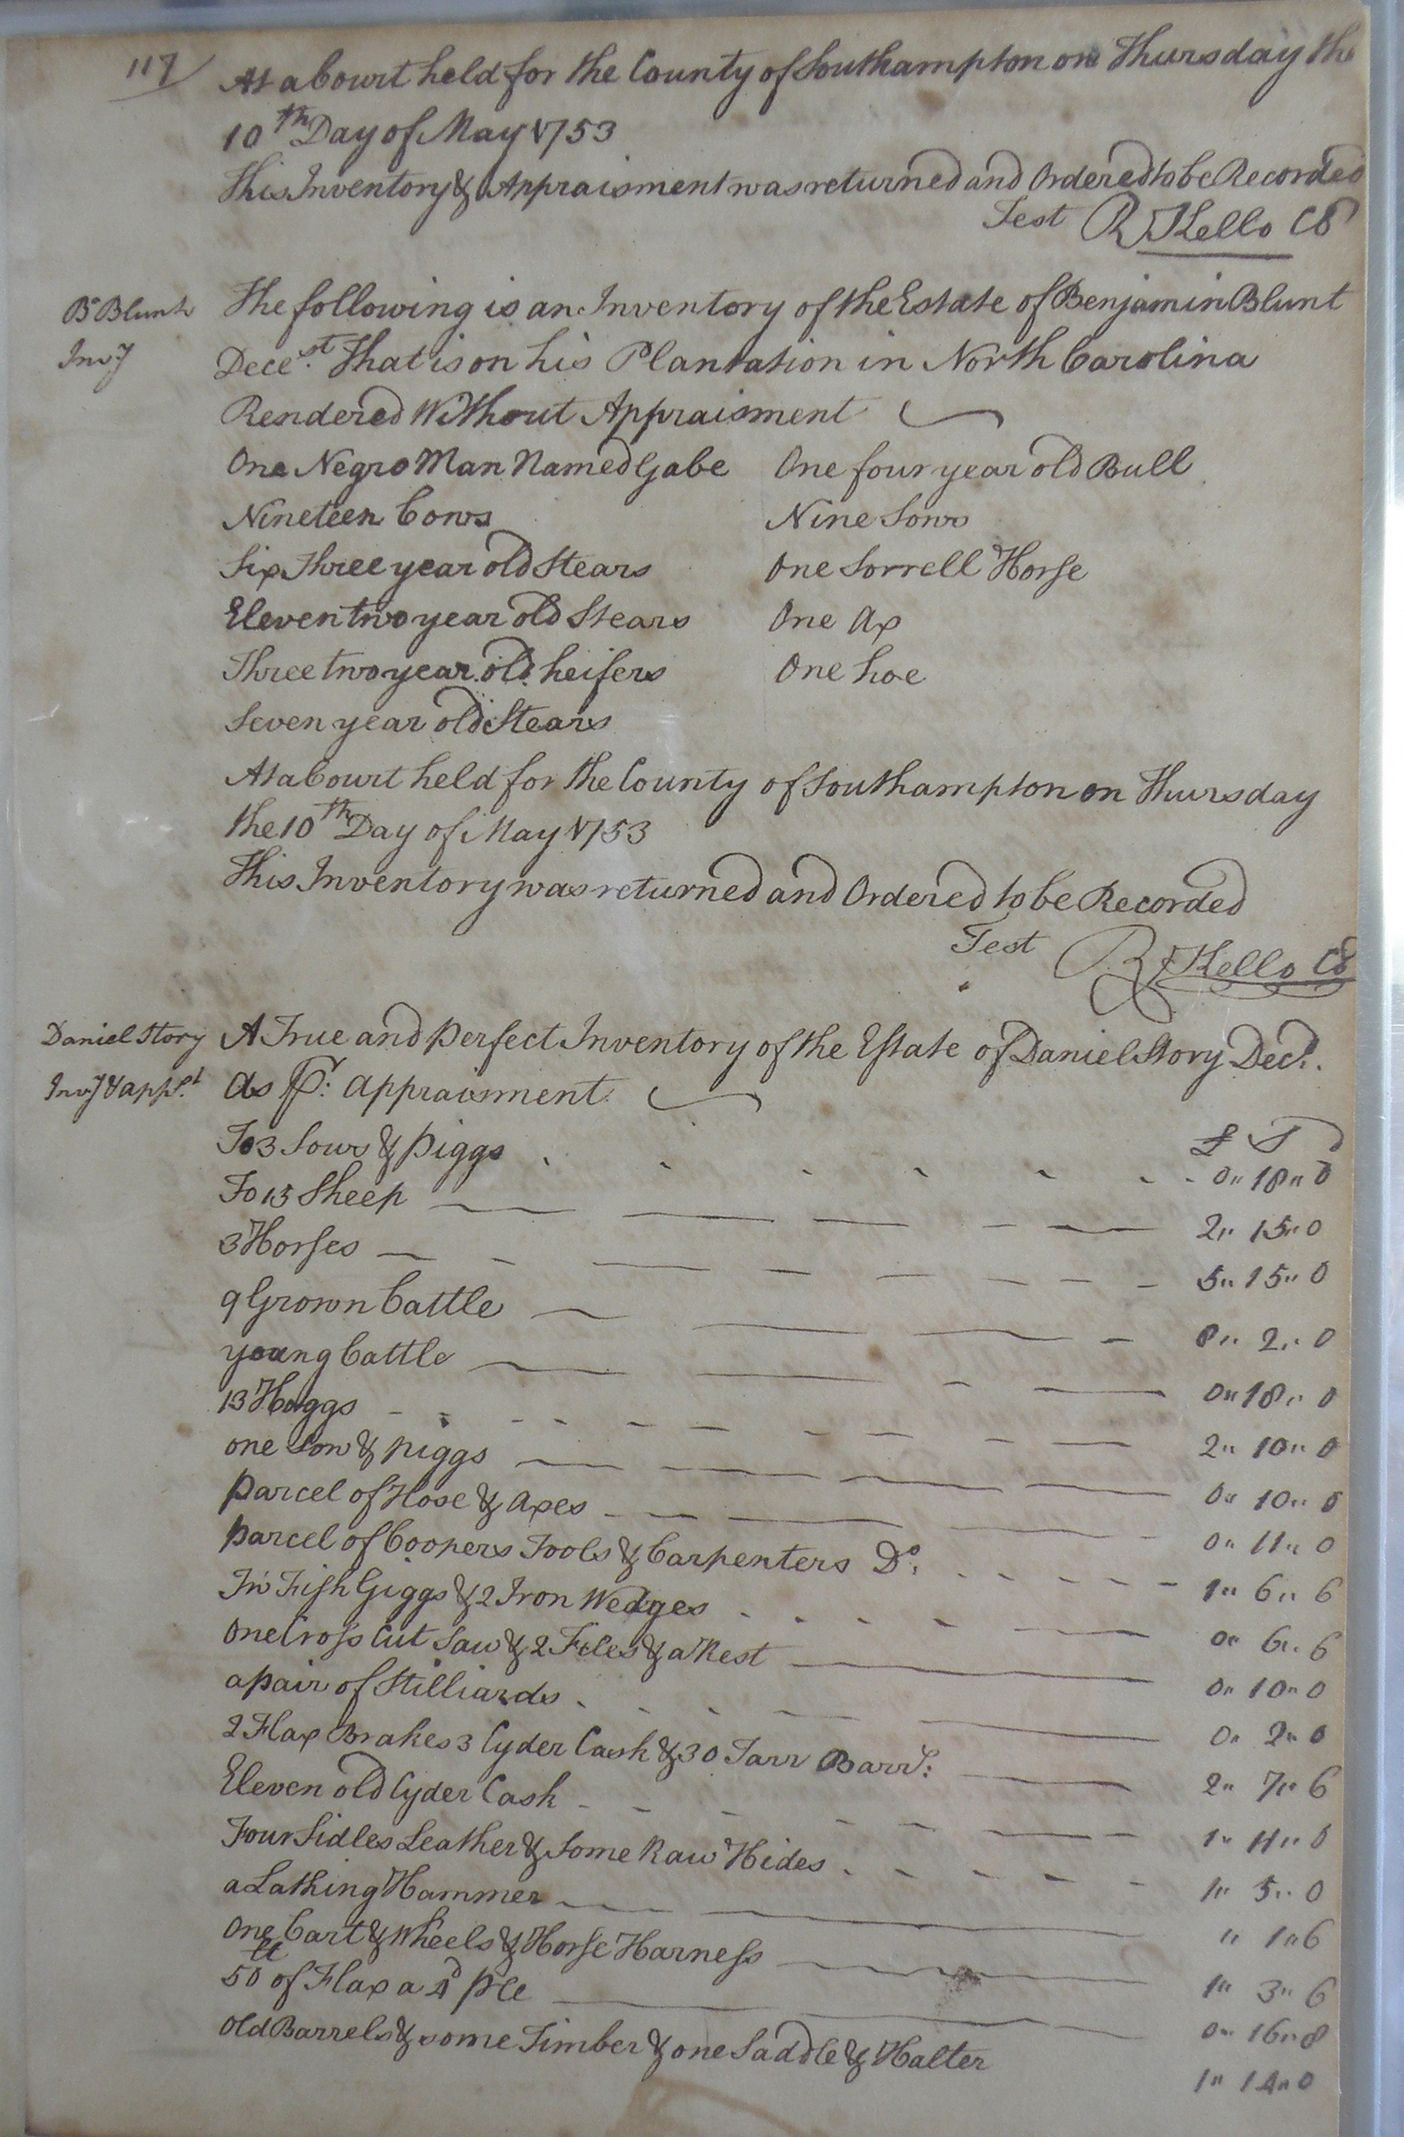 117
At a Court held for the County of Southampton on Thursday the
10th Day of May 1753
This Inventory & Appraisment was returned and Ordered to be Recorded
Test R Kello CC
Bn Blunt
Invy
The following is an Inventory of the Estate of Benjamin Blunt
Dece.st That is on his Plantation in North Carolina
Rendered Without Appraisment
One Negro Man Named Gabe One four year old Bull
Nineteen Cows Nine Sows
Six Three year old Stears One Sorrell Horse
Eleven two year old Stears One Ax
Three two year old heifers One hoe
Seven year old Stears
At a Court held for the County of Southampton on Thursday
the 10th Day of May 1753
This Inventory was returned and Ordered to be Recorded
Test R Kello CC
Daniel Story
Invy & appt
A True and perfect Inventory of the Estate of Daniel Story Decd.
As pr: appraisment
£ S D
To 3 Sows & piggs 0" 18" 0
To 15 Sheep 2" 15" 0
3 Horses 5" 15" 0
9 Grown Cattle 8" 2" 0
young Cattle 0" 18" 0
13 Hoggs 2" 10" 0
one Sow & piggs 0" 10" 0
parcel of Hose & axes 0" 11" 0
parcel of Coopers Tools & Carpenters Do. 1" 6" 6
Fish Giggs & 2 Iron Wedges 0" 6" 6
One Cross Cut Saw & 2 Files & a Rest 0" 10" 0
a pair of Stilliards 0" 2" 0
2 Flax Brakes 3 Cyder Cask & 30 Tarr Barrs: 2" 7" 6
Eleven old Cyder Cask 1" 11" 0
Four Sidles Leather & Some Raw Hides 1" 5" 0
a Lathing Hammer " 1" 6
One Cart & Wheels & Horse Harness 1" 3" 6
50 lt of Flax a 4d p 0" 16" 8
old Barrels & some Timber & one Saddle & Halter 1" 14" 0